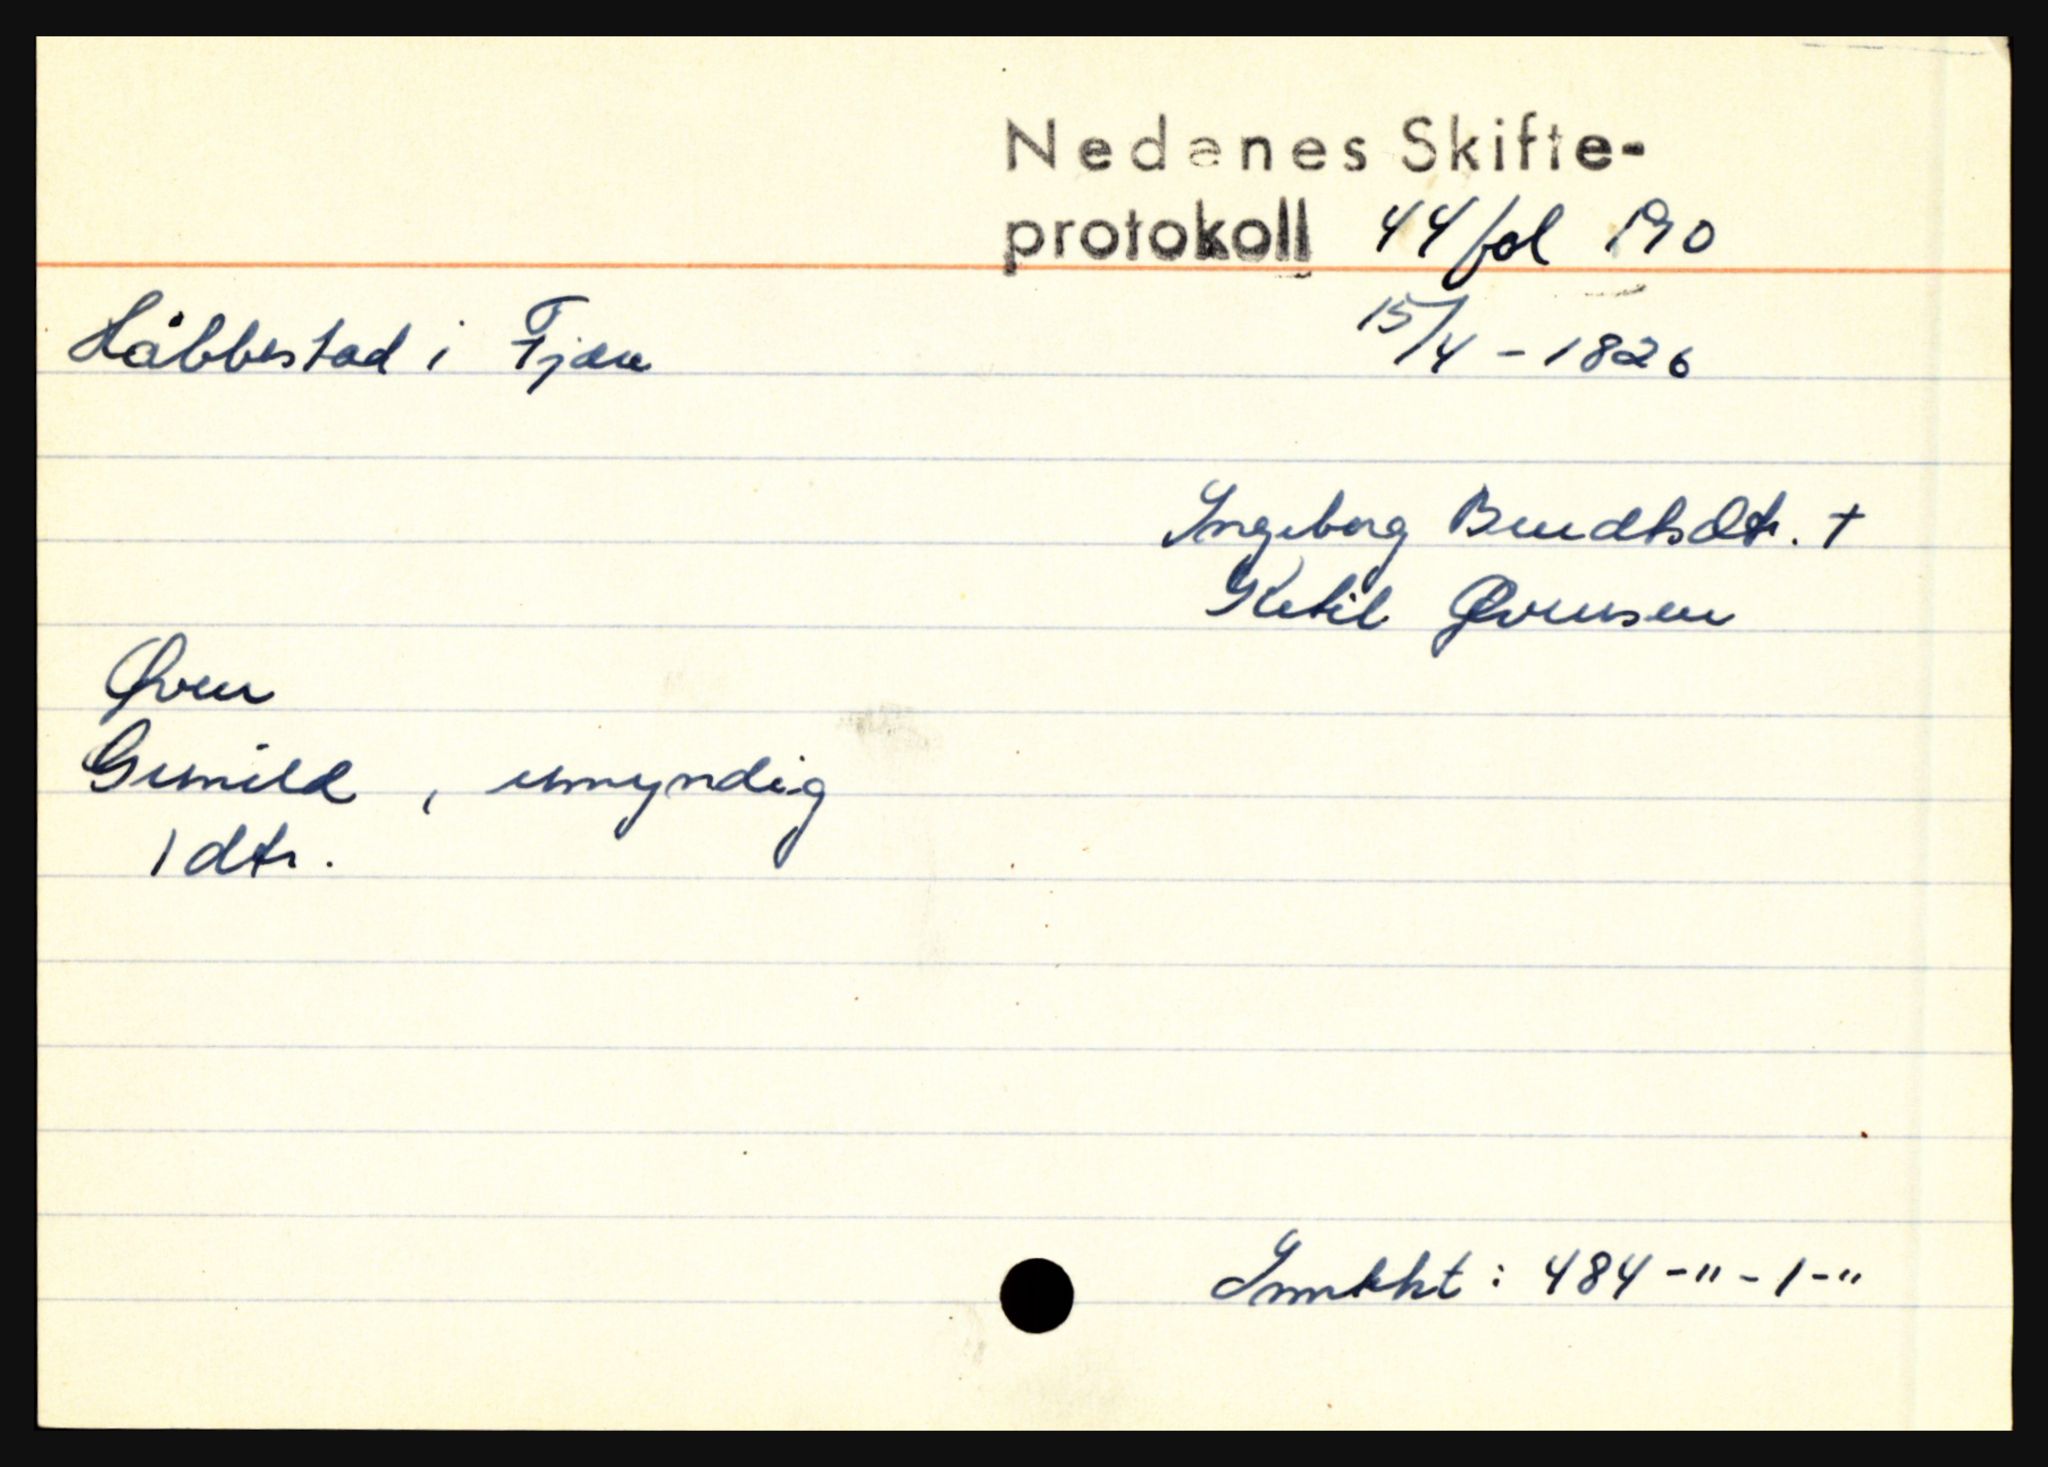 Nedenes Skifte-
protokoll 44 fol 190
Håbbestad i Fjære 15/4 - 1826
Ingeborg Berndtsdtr. +
Ketil Øvensen
Øven
Gunild , umyndig
1 dtr.
: 484 -" - 1 -"